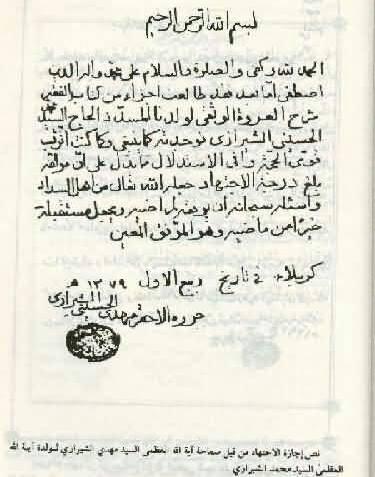 بسم الله الرحمن الرحيم
الحمد لله وكفى والصلوة والسلام على محمد وآله الذين
اصطفى اما بعد فقد طالعت اجزاء من كتاب الفقه
شرح العروة الوثقى لولدنا المسدد الحاج السيد محمد
الحسيني الشيرازي فوجدته كما ينبغي وكما كنت اترقب
قوي الحجة وافي الاستدلال مما دل على ان مؤلفه
بلغ درجة الاجتهاد جعله الله تعالى من اهل السداد
واسئله سبحانه ان يوفقه لمراضيه ويجعل مستقبله
خيرا من ماضيه وهو الموفق المعين
كربلاء في تاريخ ربيع الاول ١٣٧٩ هـ
حرره الاحقر مهدي الحسيني الشيرازي
نص إجازة الاجتهاد من قبل سماحة آية الله العظمى السيد مهدي الشيرازي لولده آية الله
العظمى السيد محمد الشيرازي